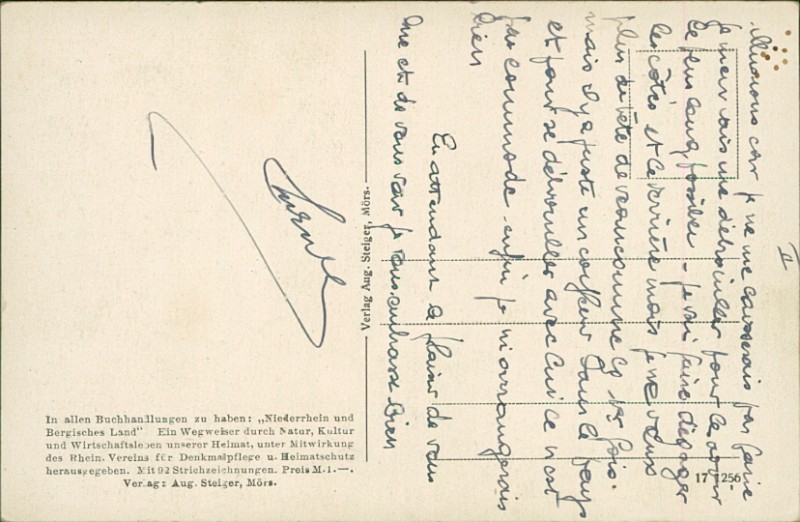 II
illusions car je ne me laisserais pas faire
je m'en vais me débrouiller pour les avoir
le plus long possible - je vais faire dégager
les côtés et le derrière mais je ne veux
plus de tête de comme la 1re fois.
mais il y a juste un coiffeur dans le pays
et pour se débrouiller avec lui ce n'est
pas commode - enfin je m'arrangerais
bien
En attendant le plaisir de vous
lire et de vous voir je vous embrasse bien
Verlag Aug. Steiger, Mörs.
In allen Buchhandlungen zu haben: „Niederrhein und
Bergisches Land“ Ein Wegweiser durch Natur, Kultur
und Wirtschaftsleben unserer Heimat, unter Mitwirkung
des Rhein. Vereins für Denkmalpflege u. Heimatschutz
herausgegeben. Mit 92 Strichzeichnungen. Preis M.1.—.
Verlag: Aug. Steiger, Mörs.
17 1256